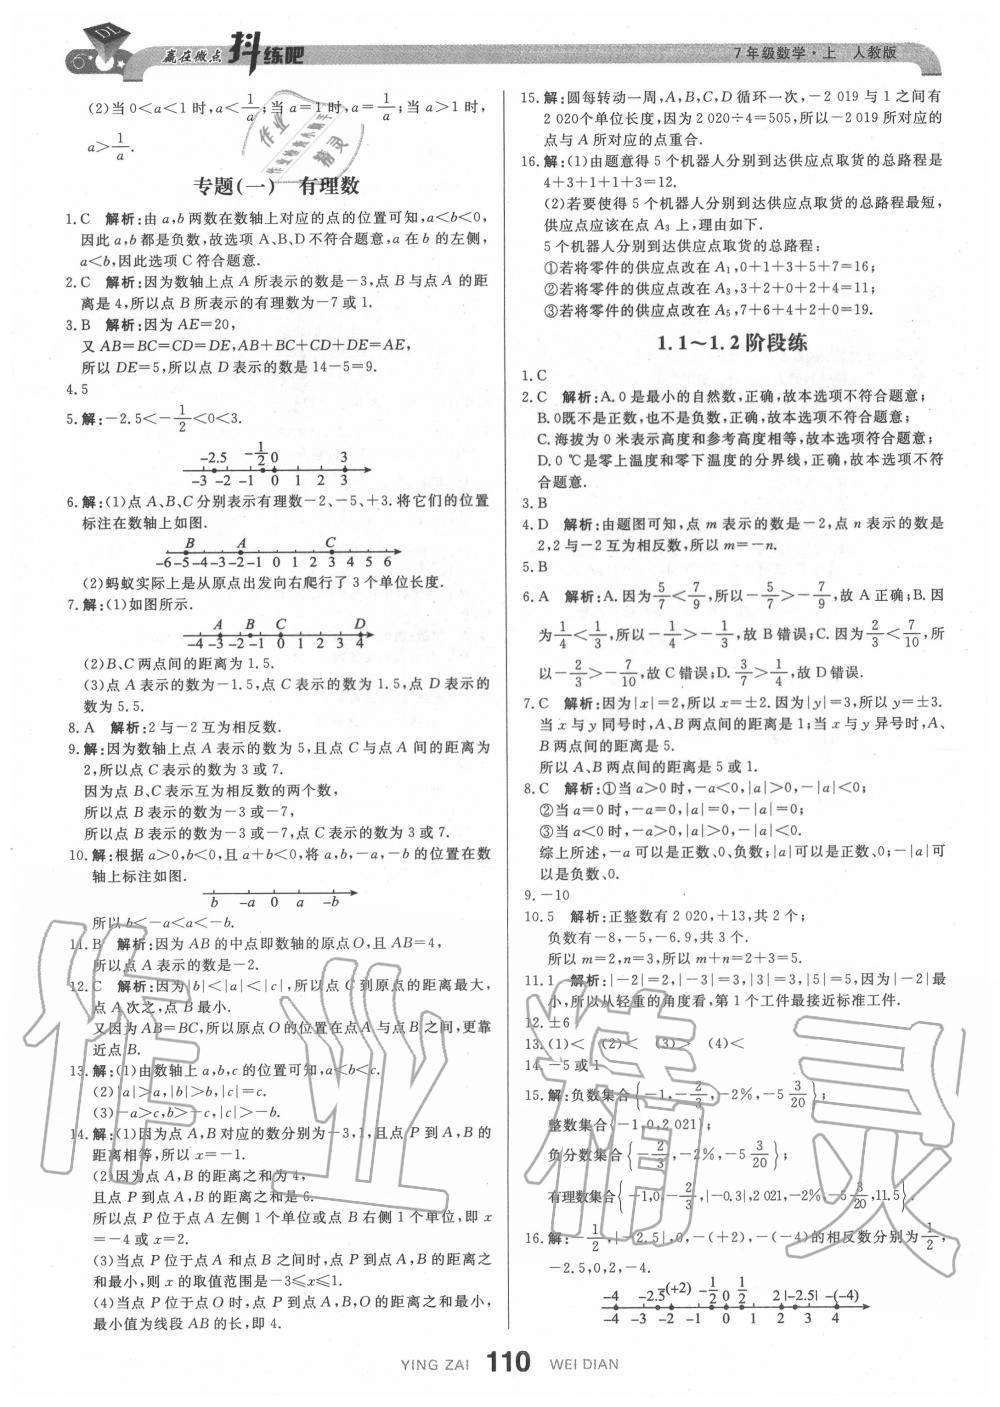 DL
赢在微点 抖练吧
7年级数学·上 人教版
(2)当 0<a<1 时,a<1/a;当 a=1时,a=1/a;当 a>1 时,
a>1/a.
专题(一) 有理数
1.C 解析:由 a,b 两数在数轴上对应的点的位置可知,a<b<0,
因此 a,b 都是负数,故选项 A、B、D不符合题意,a 在 b 的左侧,
a<b,因此选项 C 符合题意.
2.C 解析:因为数轴上点 A 所表示的数是-3,点 B 与点 A 的距
离是 4,所以点 B 所表示的有理数为-7 或 1.
3.B 解析:因为 AE=20,
又 AB=BC=CD=DE,AB+BC+CD+DE=AE,
所以 DE=5,所以点 D 表示的数是 14-5=9.
4.5
5.解:-2.5<-1/2<0<3.
-2.5 -1/2 0 3
-3 -2 -1 0 1 2 3
6.解:(1)点 A、B、C 分别表示有理数-2、-5、+3.将它们的位置
标注在数轴上如图.
B A C
-6-5-4-3-2-1 0 1 2 3 4 5 6
(2)蚂蚁实际上是从原点出发向右爬行了 3 个单位长度.
7.解:(1)如图所示.
A B C D
-4-3-2-1 0 1 2 3 4
(2)B、C 两点间的距离为 1.5.
(3)点 A 表示的数为-1.5,点 C 表示的数为 1.5,点 D 表示的
数为 5.5.
8.A 解析:2 与-2 互为相反数.
9.解:因为数轴上点 A 表示的数为 5,且点 C 与点 A 间的距离为
2,所以点 C 表示的数为 3 或 7.
因为点 B、C 表示互为相反数的两个数,
所以点 B 表示的数为-3 或-7,
所以点 B 表示的数为-3 或-7,点 C 表示的数为 3 或 7.
10.解:根据 a>0,b<0,且 a+b<0,将 a,b,-a,-b 的位置在数
轴上标注如图.
b -a 0 a -b
所以 b<-a<a<-b.
11.B 解析:因为 AB 的中点即数轴的原点 O,且 AB=4,
所以点 A 表示的数是-2.
12.C 解析:因为|b|<|a|<|c|,所以点 C 到原点的距离最大,
点 A 次之,点 B 最小.
又因为 AB=BC,所以原点 O 的位置在点 A 与点 B 之间,更靠
近点 B.
13.解:(1)由数轴上 a,b,c 的位置可知,a<b<c.
(2)|a|>a,|b|>b,|c|=c.
(3)-a>c,b>-c,|c|>-b.
14.解:(1)因为点 A,B 对应的数分别为-3,1,且点 P 到 A,B 的
距离相等,所以 x=-1.
(2)因为点 A,B 的距离之和为 4,
且点 P 到点 A,B 的距离之和是 6.
所以点 P 位于点 A 左侧 1 个单位或点 B 右侧 1 个单位,即 x
=-4 或 x=2.
(3)当点 P 位于点 A 和点 B 之间时,点 P 到点 A,B 的距离之
和最小,则 x 的取值范围是-3⩽x⩽1.
(4)当点 P 位于点 O 时,点 P 到点 A,B,O 的距离之和最小,
最小值为线段 AB 的长,即 4.
15.解:圆每转动一周,A,B,C,D 循环一次,-2 019 与 1 之间有
2 020个单位长度,因为 2 020÷4=505,所以-2 019 所对应的
点与 A 所对应的点重合.
16.解:(1)由题意得 5 个机器人分别到达供应点取货的总路程是
4+3+1+1+3=12.
(2)若要使得 5 个机器人分别到达供应点取货的总路程最短,
供应点应该在点 A₃ 上,理由如下.
5 个机器人分别到达供应点取货的总路程:
①若将零件的供应点改在 A₁,0+1+3+5+7=16;
②若将零件的供应点改在 A₃,3+2+0+2+4=11;
③若将零件的供应点改在 A₅,7+6+4+2+0=19.
1.1~1.2 阶段练
1.C
2.C 解析:A.0 是最小的自然数,正确,故本选项不符合题意;
B.0既不是正数,也不是负数,正确,故本选项不符合题意;
C.海拔为 0 米表示高度和参考高度相等,故本选项符合题意;
D.0 ℃是零上温度和零下温度的分界线,正确,故本选项不符
合题意.
3.B
4.D 解析:由题图可知,点 m 表示的数是-2,点 n 表示的数是
2,2 与-2 互为相反数,所以 m=-n.
5.B
6.A 解析:A.因为5/7<7/9,所以-5/7>-7/9,故 A 正确;B.因
为1/4<1/3,所以-1/4>-1/3,故 B 错误;C.因为2/3<7/10,所
以-2/3>-7/10,故 C 错误;D.3/7>1/4,故 D 错误.
7.C 解析:因为|x|=2,所以 x=±2.因为|y|=3,所以 y=±3.
当 x 与 y 同号时,A、B 两点间的距离是 1;当 x 与 y 异号时,A、
B 两点间的距离是 5.
所以 A、B 两点间的距离是 5 或 1.
8.C 解析:①当 a>0 时,-a<0,|a|>0,-|a|<0;
②当 a=0 时,-a=0,|a|=0,-|a|=0;
③当 a<0 时,-a>0,|a|>0,-|a|<0.
综上所述,-a 可以是正数、0、负数;|a|可以是正数、0;-|a|可
以是负数、0.
9.-10
10.5 解析:正整数有 2 020,+13,共 2 个;
负数有-8,-5,-6.9,共 3 个.
所以 m=2,n=3,所以 m+n=2+3=5.
11.1 解析:|-2|=2,|-3|=3,|3|=3,|5|=5,因为|-2|最
小,所以从轻重的角度看,第 1 个工件最接近标准工件.
12.±6
13.(1)< (2)< (3)> (4)<
14.-5 或 1
15.解:负数集合{-1,-2/3,-2%,-5 3/20};
整数集合{-1,0,2 021};
负分数集合{-2/3,-2%,-5 3/20};
有理数集合{-1,0,-2/3,|-0.3|,2 021,-2%,-5 3/20,11.5}.
16.解:-1/2,|-2.5|,0,-(+2),-(-4)的相反数分别为1/2,
-2.5,0,2,-4.
-4 -2.5 -(+2) -1/2 0 1/2 2 |-2.5| -(-4)
-4 -3 -2 -1 0 1 2 3 4
作业精灵
YING ZAI 110 WEI DIAN